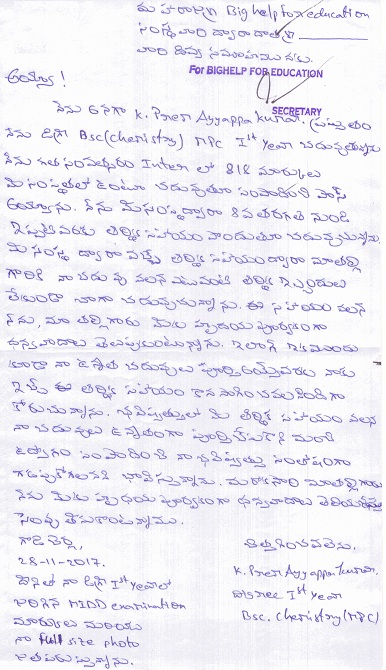 మహారాజశ్రీ Big help for education
సంస్థ వారి ద్వారా దాత శ్రీ
వారి దివ్య సముఖమునకు.
For BIGHELP FOR EDUCATION
SECRETARY
అయ్యా!
నేను అనగా K. Prem Ayyappa kumar. ప్రస్తుతం
నేను డిగ్రీ Bsc (Chemistry) MPC Ist Year చదువుతున్నాను
నేను గత సంవత్సరం Inter లో 818 మార్కులు
మీ సంస్థలో ఉంటూ చదువుతూ సంపాదించి పాస్
అయ్యాను. నేను మీ సంస్థ ద్వారా 8వ తరగతి నుండి
ఇప్పటివరకు ఆర్థిక సహాయం పొందుతూ చదువుచున్నాను.
మీ సంస్థ ద్వారా వచ్చే ఆర్థిక సహాయం ద్వారా మా తల్లి
గారికి నా చదువు వలన ఎటువంటి ఆర్థిక ఇబ్బందులు
లేకుండా బాగా చదువుచున్నాను. ఈ సహాయం వలన
నేను, మా తల్లిగారు మీకు హృదయ పూర్వకంగా
ధన్యవాదాలు తెలుపుకుంటున్నాను. ఇలాగే ఇకముందు
కూడా నా ఉన్నత చదువులు పూర్తి అయ్యేవరకు నాకు
ఇచ్చే ఈ ఆర్థిక సహాయం కొనసాగించవలసిందిగా
కోరుచున్నాను. భవిష్యత్తులో మీ ఆర్థిక సహాయం వలన
నా చదువులు ఉన్నతంగా పూర్తి చేసుకొని మంచి
ఉద్యోగం సంపాదించి నా భవిష్యత్తు సంతోషంగా
గడుపుకోగలనని భావిస్తున్నాను. మరొకసారి మా తల్లిగారు
నేను మీకు హృదయ పూర్వకంగా ధన్యవాదాలు తెలియజేస్తూ
సెలవు తీసుకుంటున్నాము.
28-11-2017.
చిత్తగించవలెను.
K. Prem Ayyappa kumar.
Degree Ist Year
Bsc. Chemistry (MPC)
దీనితో నా డిగ్రీ Ist Year లో
జరిగిన MIDD examination
మార్కులు మరియు
నా full size photo
జతపరుస్తున్నాను.